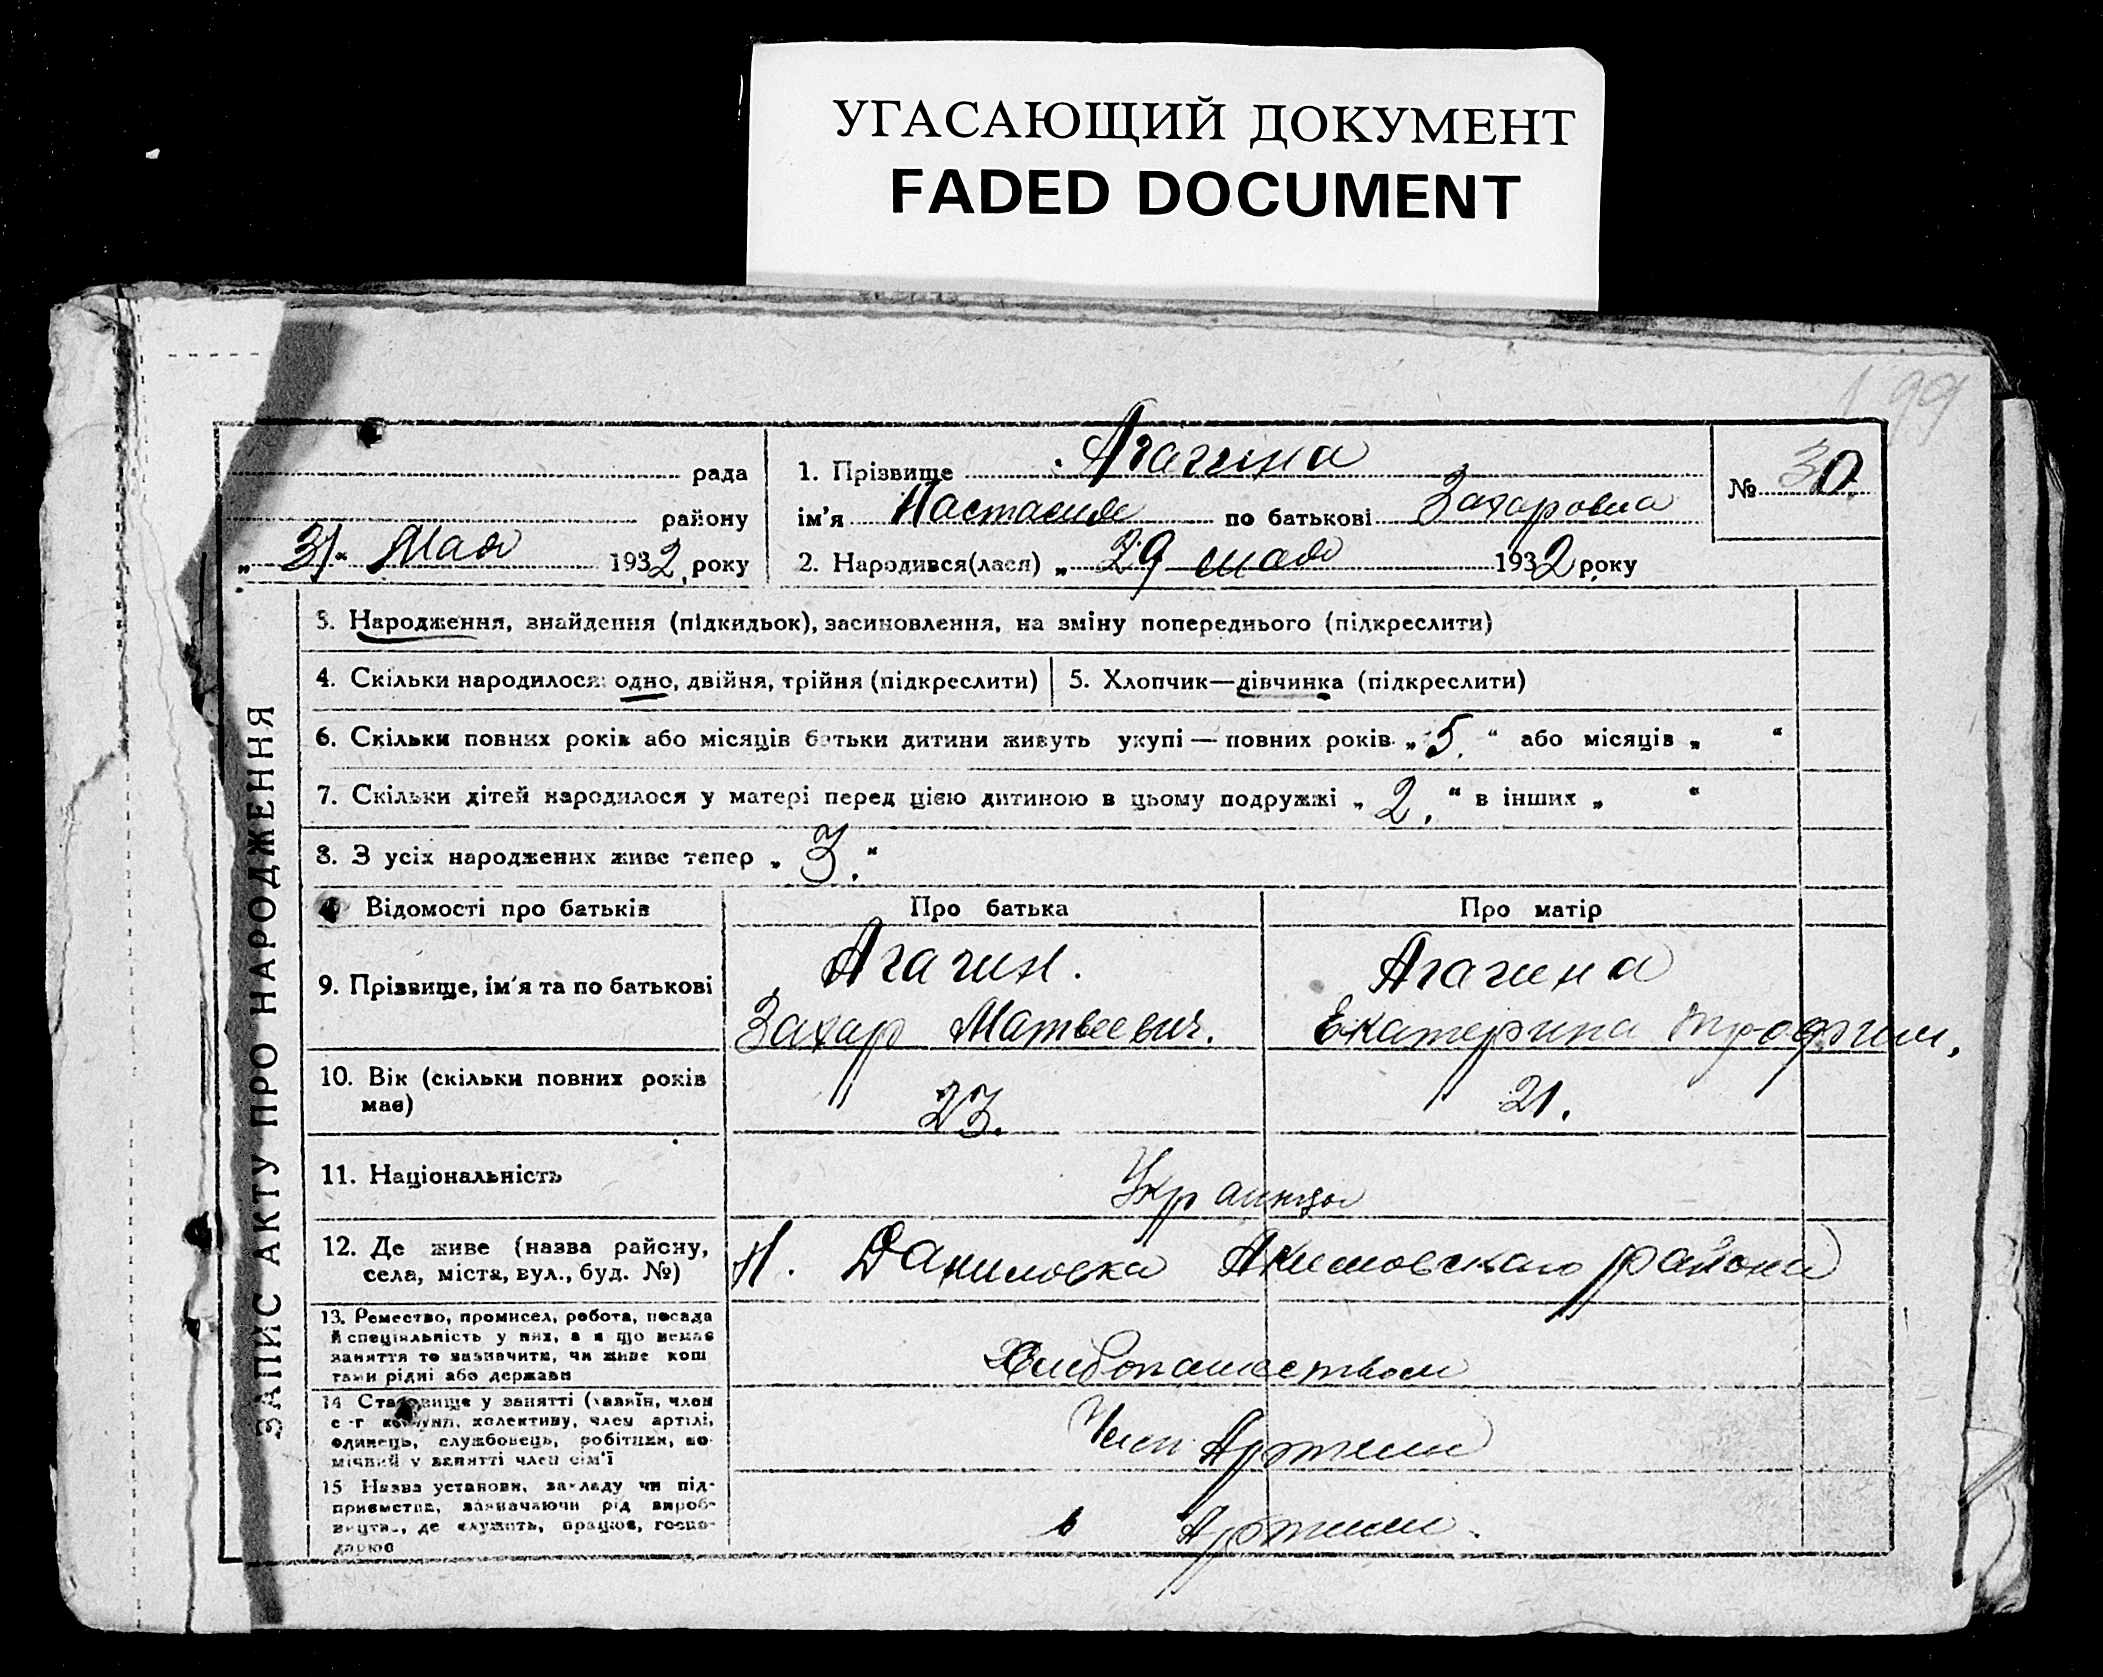 УГАСАЮЩИЙ ДОКУМЕНТ
FADED DOCUMENT
199
ЗАПИС АКТУ ПРО НАРОДЖЕННЯ
рада
району
„ 31 “ Мая 1932 року
1. Прізвище Агагина
ім'я Настасия по батькові Захаровна
2. Народився(лася) „ 29 мая 1932 року
№ 30
3. Народження, знайдення (підкидьок), засиновлення, на зміну попереднього (підкреслити)
4. Скільки народилося: одно, двійня, трійня (підкреслити)
5. Хлопчик—дівчинка (підкреслити)
6. Скільки повних років або місяців батьки дитини живуть укупі — повних років „ 5. “ або місяців „ “
7. Скільки дітей народилося у матері перед цією дитиною в цьому подружжі „ 2. “ в інших „ “
8. З усіх народжених живе тепер „ 3. “
Відомості про батьків
Про батька
Про матір
9. Прізвище, ім'я та по батькові
Агагин.
Захар Матвеевич.
Агагина
Екатерина Трофим.
10. Вік (скільки повних років має)
23.
21.
11. Національність
Украинцы
12. Де живе (назва району, села, міста, вул., буд. №)
Н. Даниловка Акимовского района
13. Ремество, промисел, робота, посада
й спеціяльність у них, а я що немає
заняття то зазначити, чи живе кош
тами рідні або держави
Хлебопашеством
14 Становище у занятті (хазяїн, член
с-г комуни, колективу, член артілі,
одинець, службовець, робітник, по-
мічний у занятті член сім'ї
Член Артели
15 Назва установи, закладу чи під-
приємства, зазначаючи рід вироб-
ництв., де служить, працює, госпо-
дарює
в Артели.